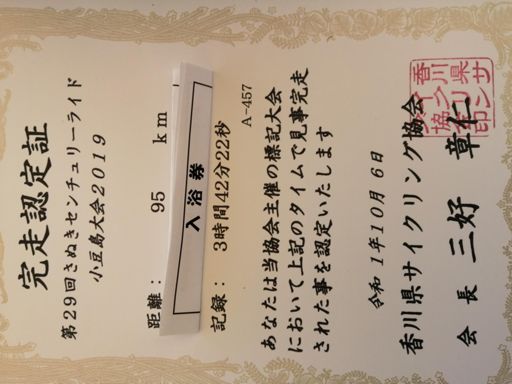 完走認定証
第29回さぬきセンチュリーライド
小豆島大会2019
距離： 95 km
入浴券
記録： 3時間42分22秒
A-457
あなたは当協会主催の標記大会
において上記のタイムで見事完走
された事を認定いたします
令和1年10月6日
香川県サイクリング協会
会長 三好 章仁